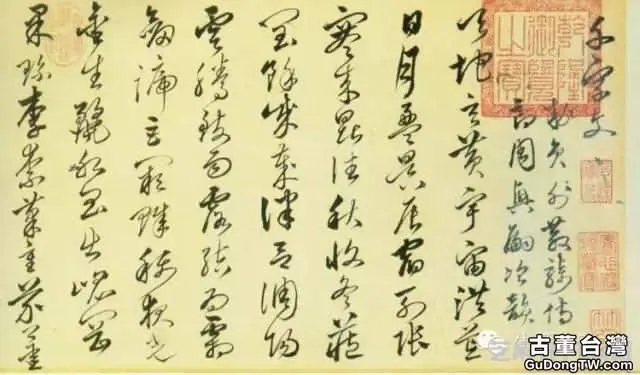 千字文
敕員外散騎侍
郎周興嗣次韻
乾隆
御覽
之寶
天地玄黃宇宙洪荒
日月盈昃辰宿列張
寒來暑往秋收冬藏
閏餘成歲律呂調陽
雲騰致雨露結為霜
劍號巨闕珠稱夜光
金生麗水玉出崑岡
果珍李柰菜重芥薑
古董台灣
GuDongTW.com